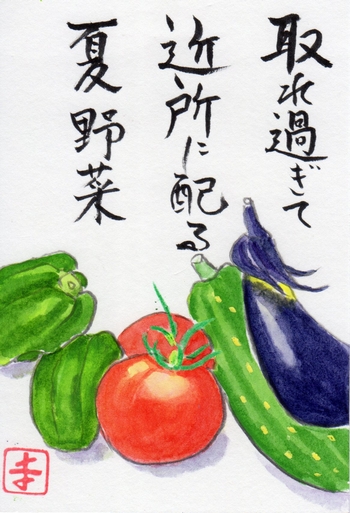 取れ過ぎて
近所に配る
夏野菜